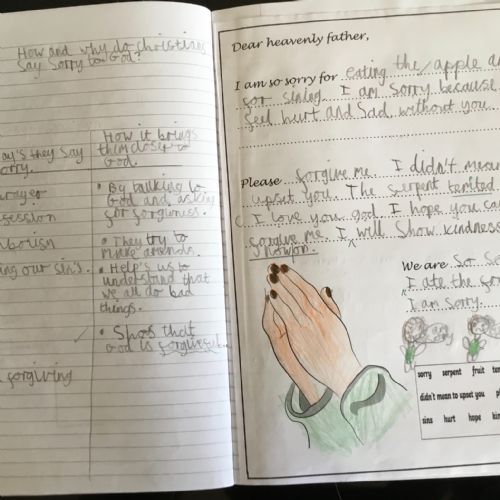 How and why do christians
Say Sorry to God?
How it brings
them closer to
God.
they Say
• By talking to
God and asking
for forgivness.
• They try to
make amends.
• Help's us to
understand that
we all do bad
things.
• Shos that
God is
forgiving
Dear heavenly father,
I am so sorry for eating the apple
for sining. I am sorry because
feel hurt and sad without you.
Please forgive me. I didn't mean
upset you. The serpent
I love you god. I hope you
forgive me. I will show kindness
We are so
I ate the
I am sorry.
sorry serpent fruit
didn't mean to upset you
sins hurt hope